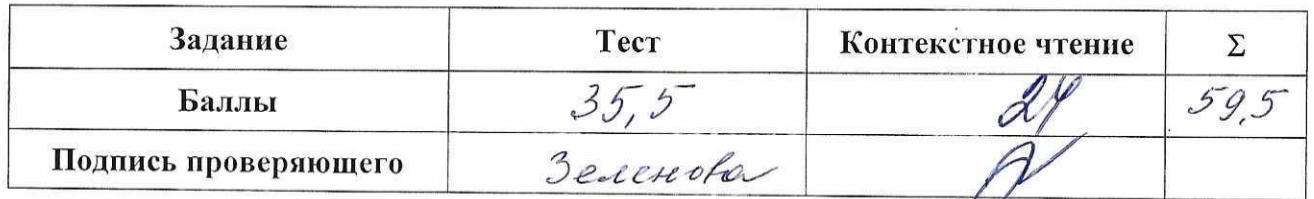 Задание Тест Контекстное чтение Σ
Баллы 35,5 24 59,5
Подпись проверяющего Зеленова